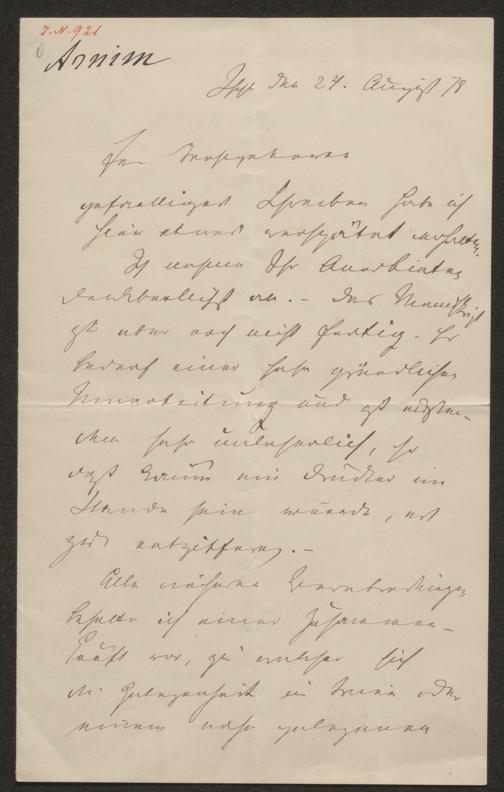 J. N. 921
Arnim
Ischl den 24. August 78
Euer Hochgeboren
gefaelliges Schreiben habe ich
hier etwas verspätet erhalten.
Ich nehme Ihr Anerbieten
dankbarlichst an. – Das Manuskript
ist aber noch nicht fertig. Es
bedarf einer sehr gründlichen
Umarbeitung und ist
sehr unleserlich, so
daß kaum ein Drucker im
Stande sein wuerde, es
zu entziffern. –
Alle näheren
behalte ich einer Zusammen-
kunft vor, zu welcher sich
die Gelegenheit in Wien oder
einem nahe gelegenen